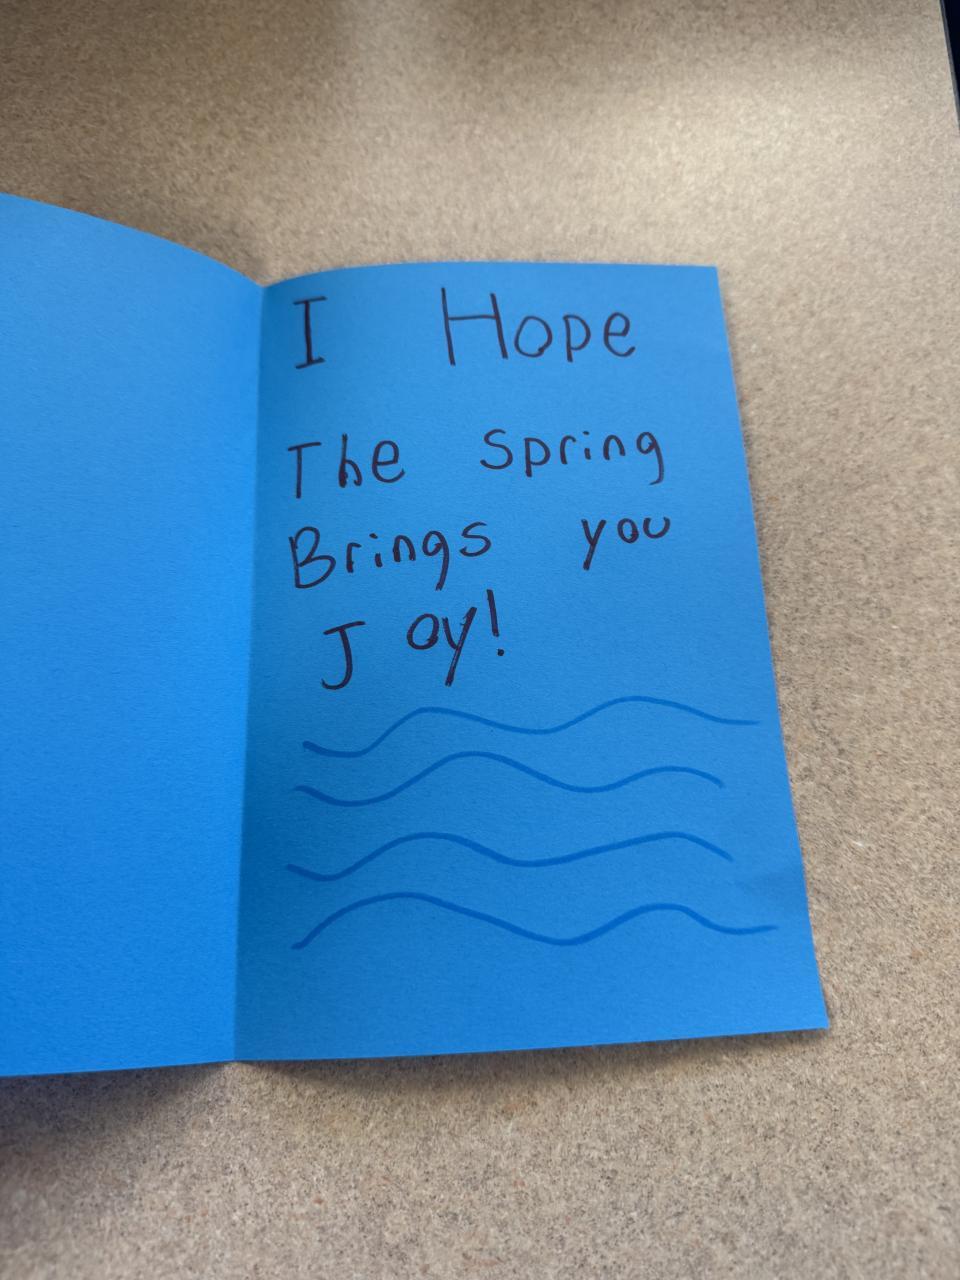 I Hope
The Spring
Brings you
Joy!